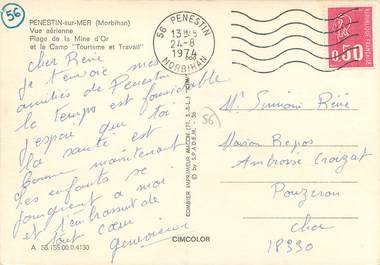 56
PENESTIN-sur-MER (Morbihan)
Vue aérienne
Plage de la Mine d'Or
et le Camp "Tourisme et Travail"
56 PENESTIN
24-8
1974
MORBIHAN
0,50
cher Réné
je t'envoie mes
amitiés de Penestin
le temps est formidable
j'espère que toi
la santé est
bonne maintenant
les enfants se
joignent a moi
et t'embrassent de
tout cœur
Genevieve
56
Mr Simioni Réné
Maison Repos
Ambroise Croizat
Pouzeron
Cher
18330
COMBIER IMPRIMEUR MACON
© by S.P.A.D.E.M.
CIMCOLOR
A 56.155.00.0.4130